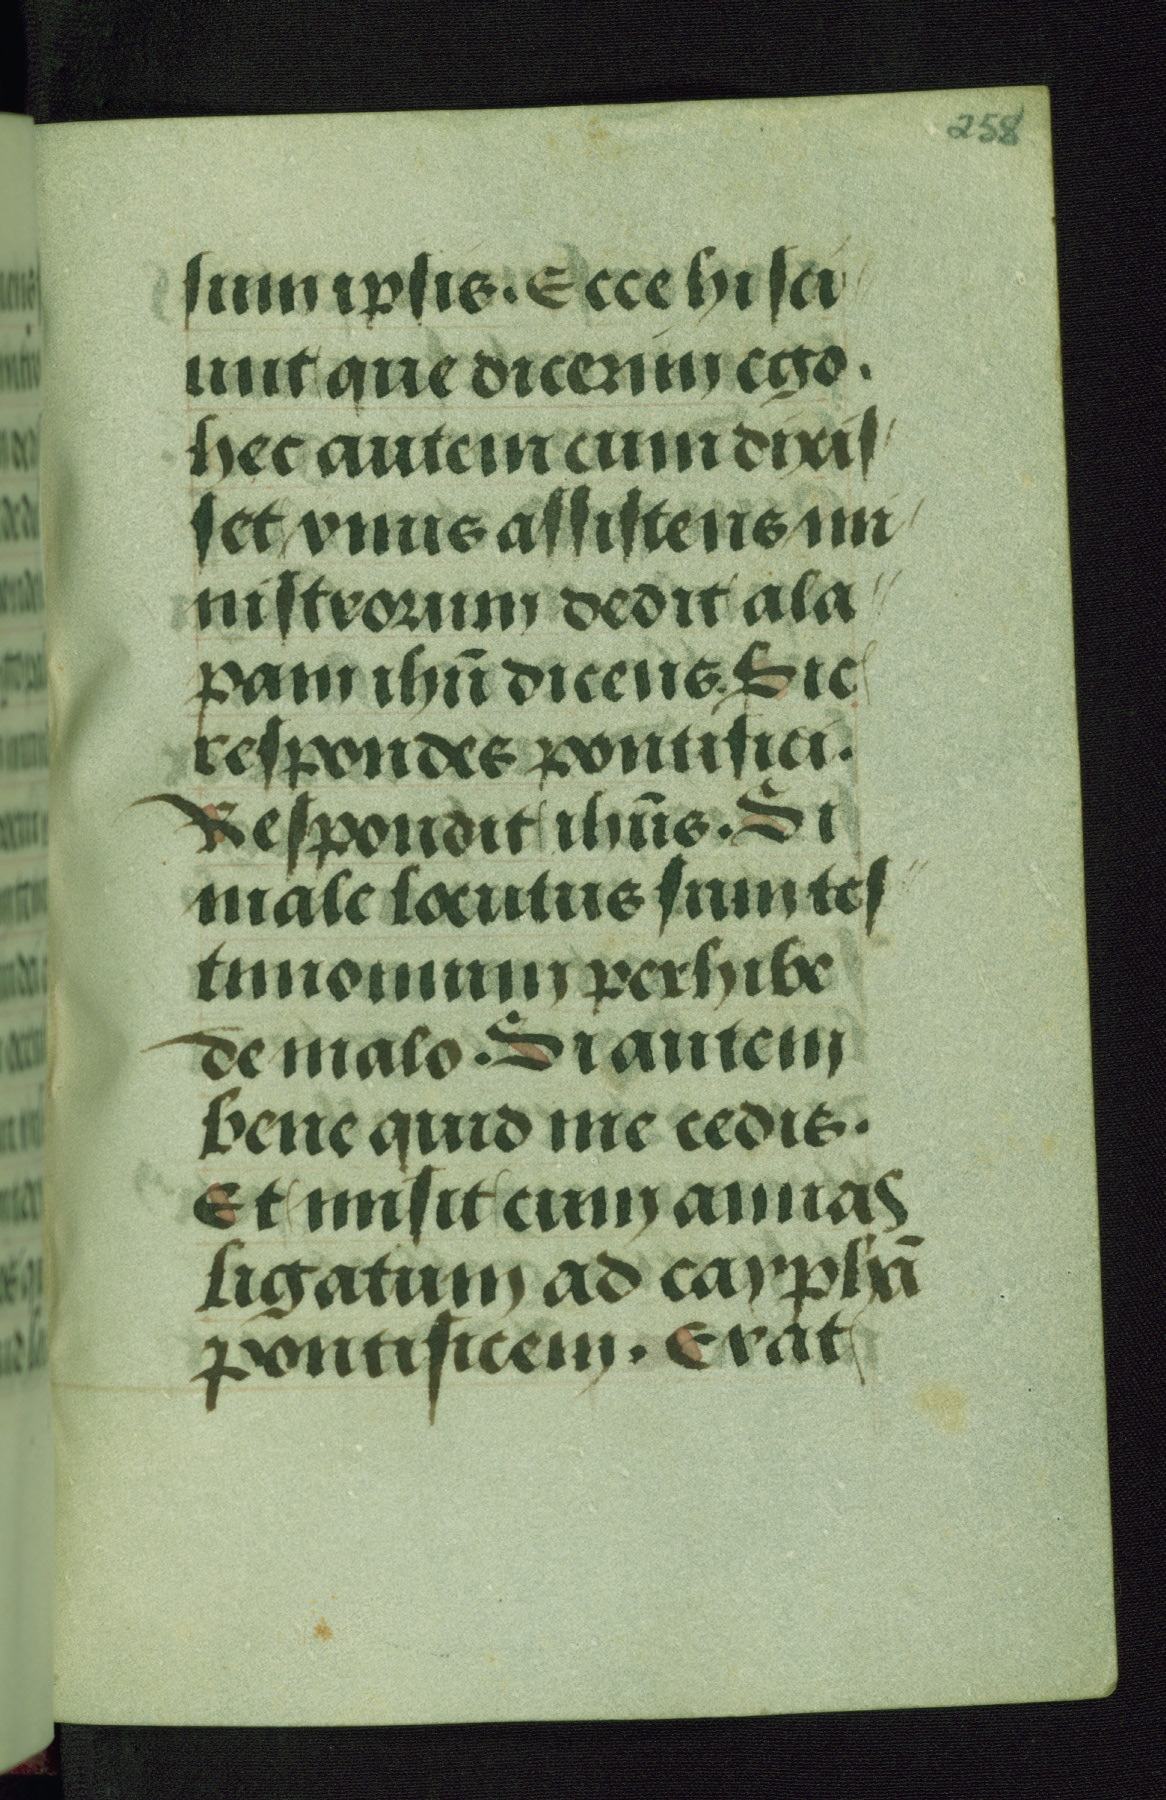 258
sum ipsis. Ecce hi sci
unt que dicerim ego.
hec autem cum dixis
set vnus assistens mi
nistrorum dedit ala
pam ihū dicens. Sic
respondes pontifici.
Respondit ihūs. Si
male locutus sum tes
timonium perhibe
de malo. Si autem
bene quid me cedis.
Et misit eum annas
ligatum ad caypħā
pontificem. Erat